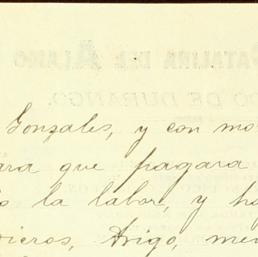 CATALINA DEL ALAMO
DO DE DURANGO.
Gonzales, y con mo
ara que pagara
la labor, y h
Trigo,